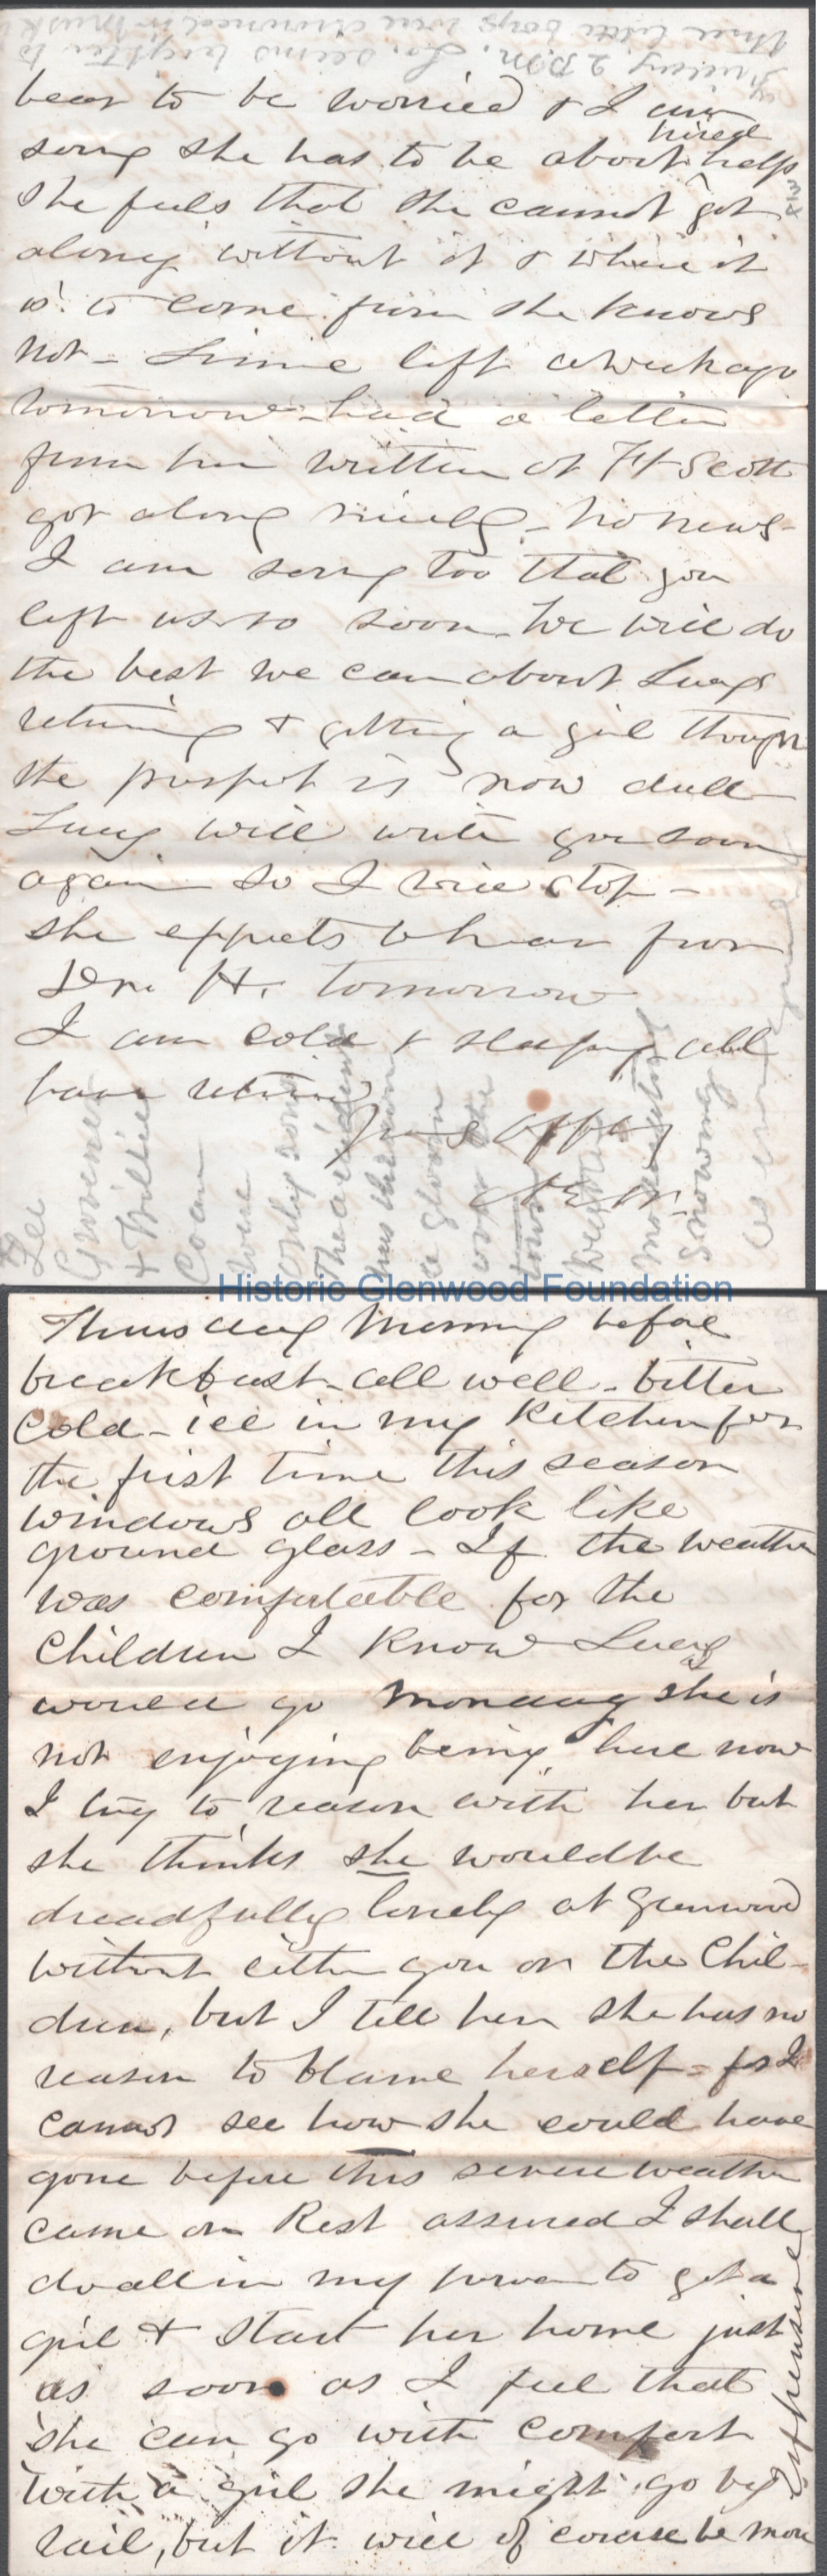 Friday, 2 P.M. seems brighter to
three little boys were drowned in
bear to be worried & I am
sorry she has to be about hired help
She feels that she cannot get
along without it & where it
is to come from she knows
not - left a week ago
tomorrow - had a letter
from him written at Ft Scott
got along nicely - no news -
I am sorry too that you
left us so soon. We will do
the best we can about Lucy's
returning & getting a girl though
the prospect is now dull
Lucy will write you soon
again so I will stop -
she expects to hear from
H. tomorrow
I am cold & sleepy all
have retired
Yours affly
Lee
& Willie
Coan
were
only sons
The accident
has thrown
a gloom
over the
town
Weather
moderating
Snowing
Historic Glenwood Foundation
Thursday Morning before
breakfast - all well - bitter
cold - ice in my kitchen for
the first time this season
windows all look like
ground glass - If the weather
was comfortable for the
children I know Lucy
would go Monday as she is
not enjoying being here now
I try to reason with her but
she thinks she would be
dreadfully lonely at Glenwood
without either you or the Chil-
dren, but I tell her she has no
reason to blame herself - for I
cannot see how she could have
gone before this severe weather
came on Rest assured I shall
do all in my power to get a
girl & start her home just
as soon as I feel that
she can go with comfort
With a girl she might go by
rail, but it will of course be more
expensive